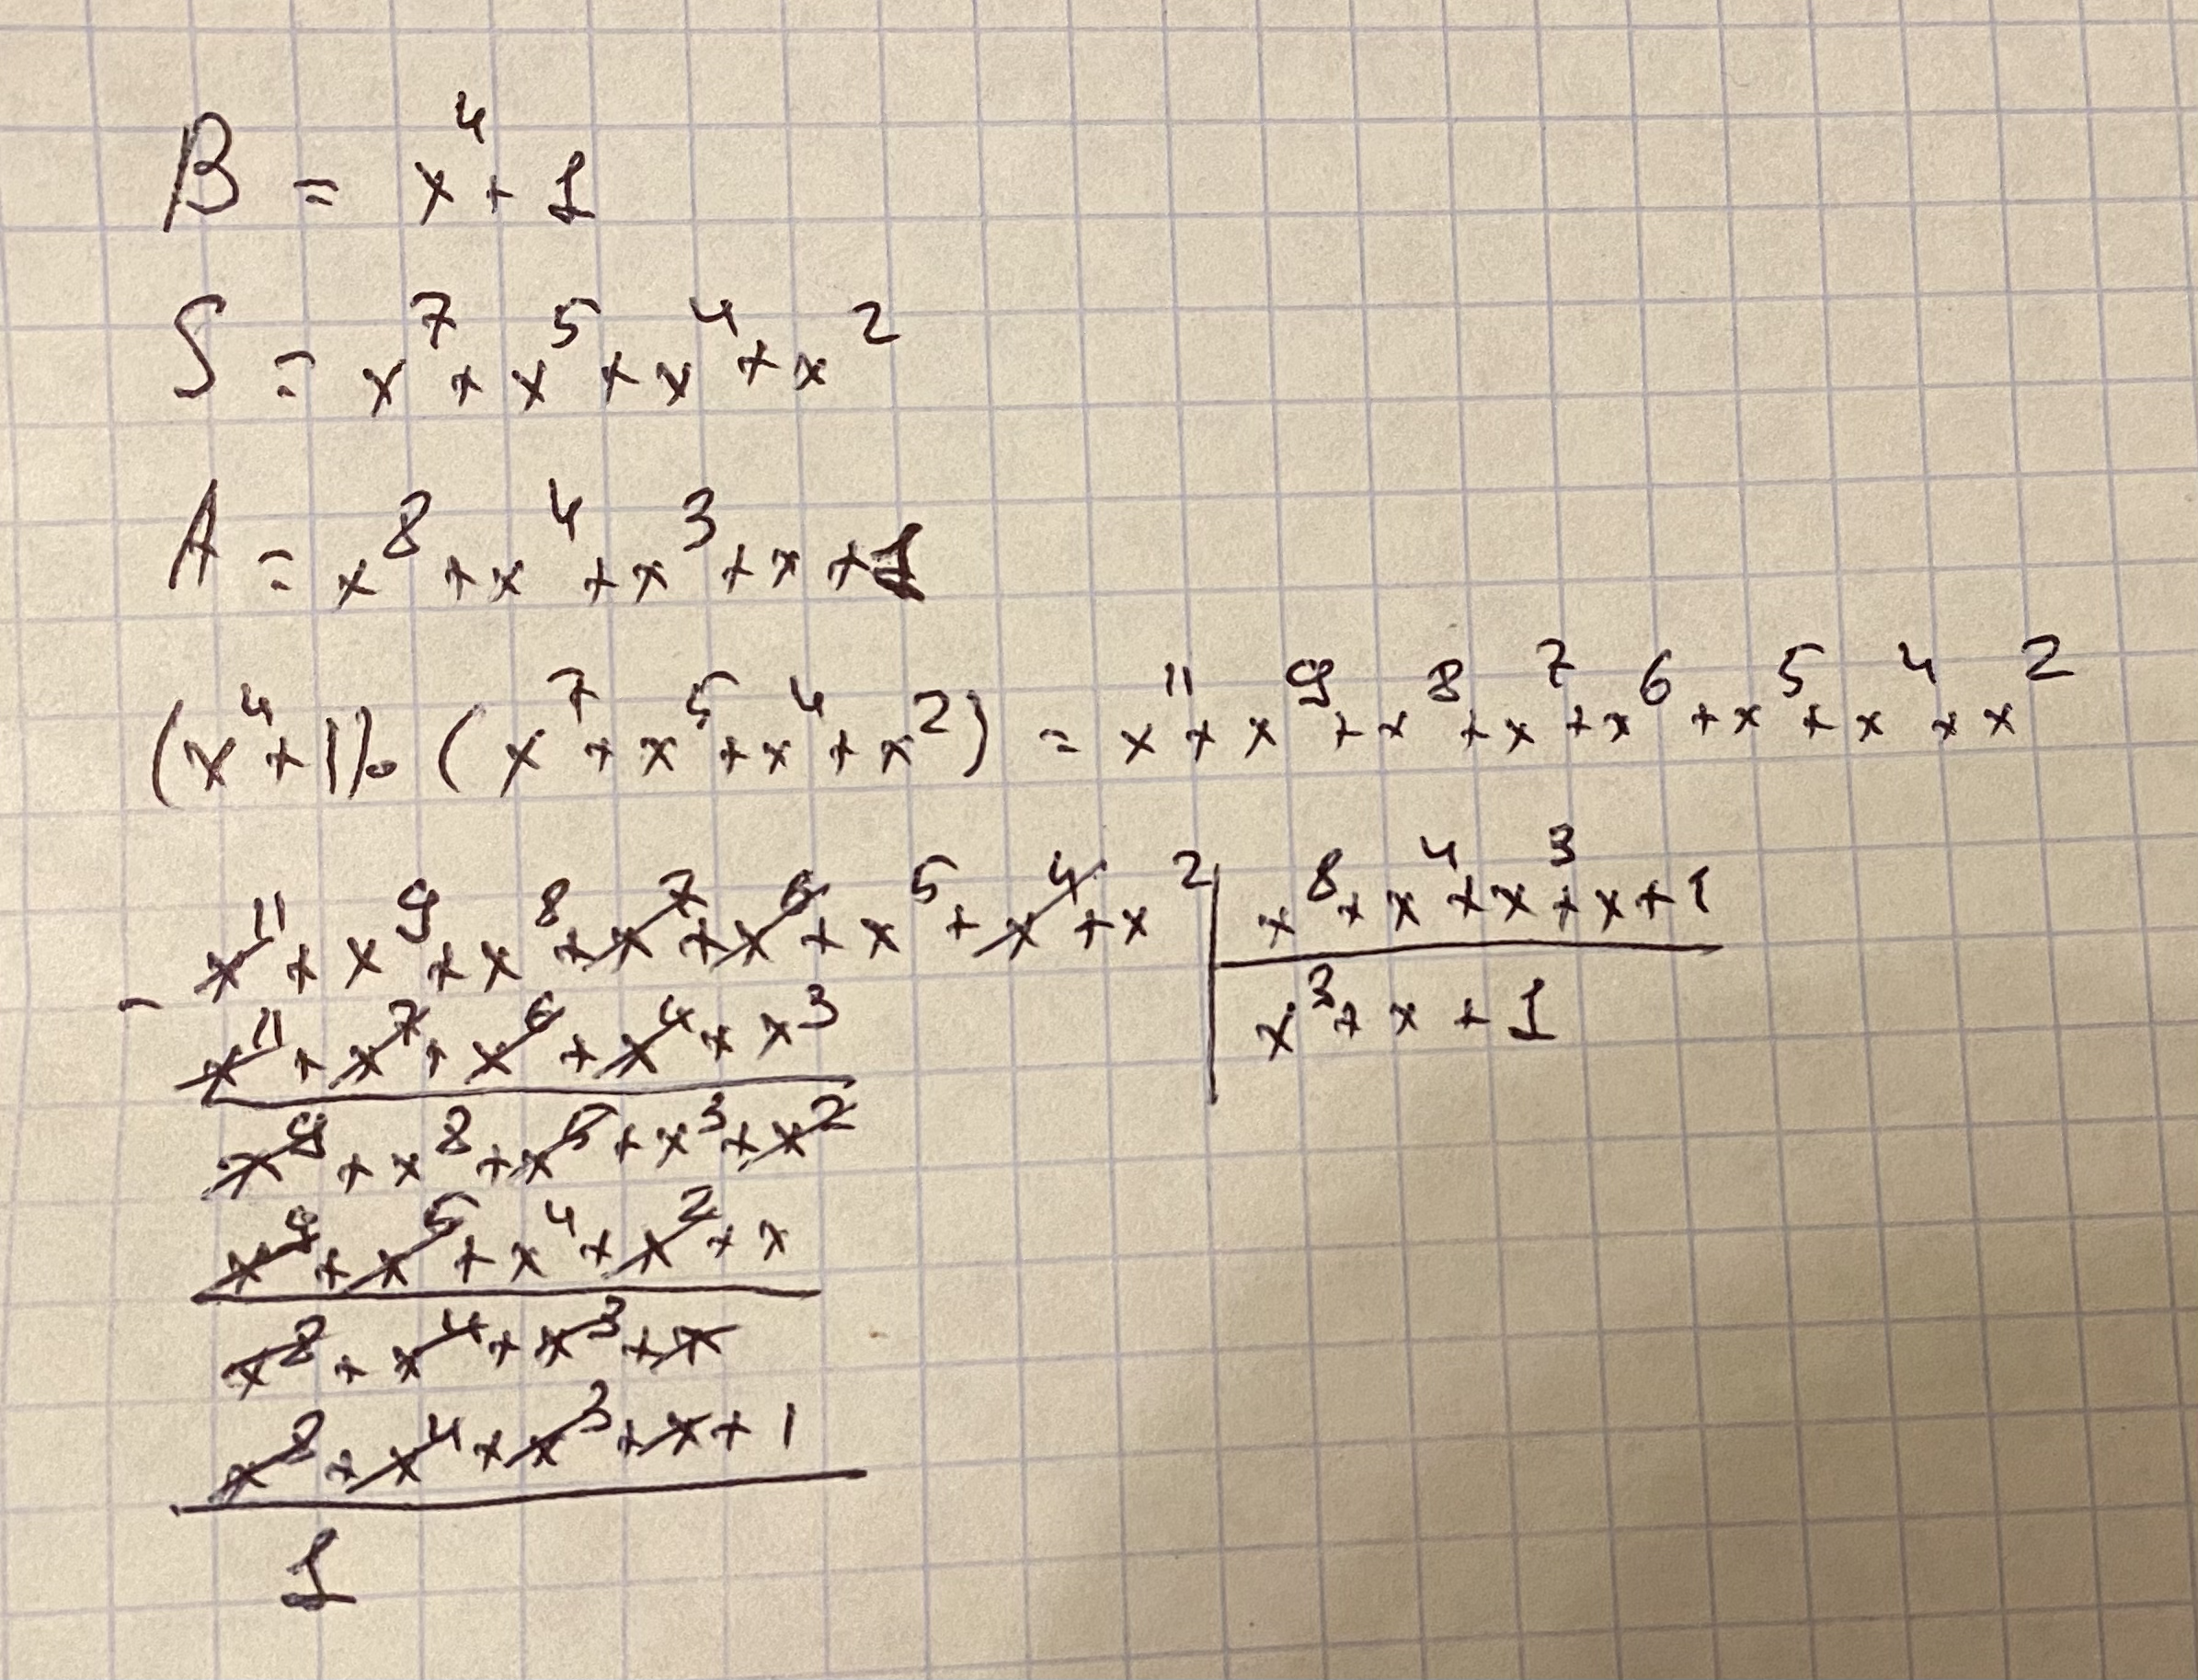 B = x⁴ + 1
S = x⁷ + x⁵ + x⁴ + x²
A = x⁸ + x⁴ + x³ + x + 1
(x⁴ + 1) · (x⁷ + x⁵ + x⁴ + x²) = x¹¹ + x⁹ + x⁸ + x⁷ + x⁶ + x⁵ + x⁴ + x²
x¹¹ + x⁹ + x⁸ + x⁷ + x⁶ + x⁵ + x⁴ + x² | x⁸ + x⁴ + x³ + x + 1
- x¹¹ + x⁷ + x⁶ + x⁴ + x³ | x³ + x + 1
x⁹ + x⁸ + x⁵ + x³ + x²
x⁹ + x⁵ + x⁴ + x² + x
x⁸ + x⁴ + x³ + x
x⁸ + x⁴ + x³ + x + 1
1